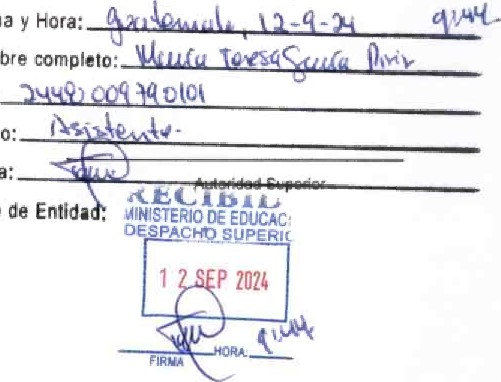 a y Hora: Guatemala, 12-9-24 9:44
bre completo: María Teresa García Pirir
2448200979 0101
o: Asistente.
a:
Autoridad Superior
de Entidad:
RECIBID
MINISTERIO DE EDUCAC
DESPACHO SUPERIO
12 SEP 2024
FIRMA HORA: 9:44